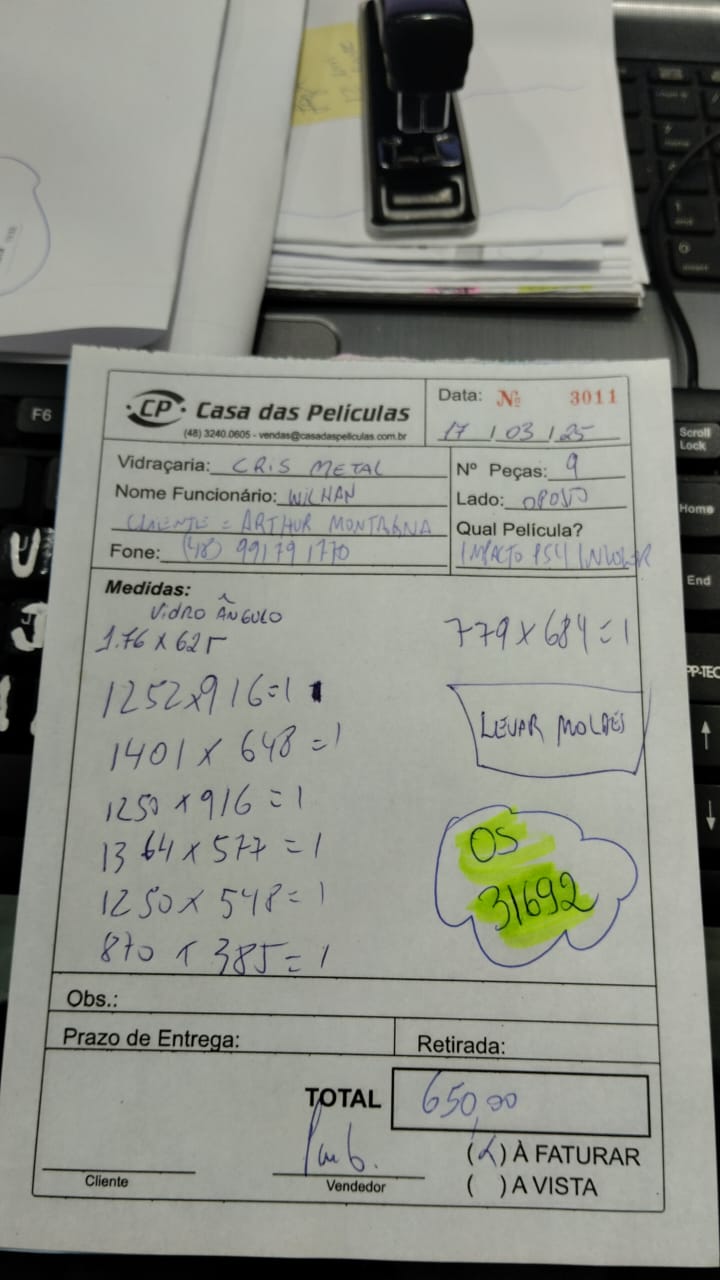 CP Casa das Películas
(48) 3240.0605 - vendas@casadaspeliculas.com.br
Data: Nº 3011
17 / 03 / 25
Vidraçaria: CRIS METAL
Nº Peças: 9
Nome Funcionário: WILHAN
Lado: OPOSTO
CLIENTE = ARTHUR MONTAGNA
Qual Película?
Fone: (48) 99179 1770
IMPACTO PS4 INCOLOR
Medidas:
VIDRO ÂNGULO
1.76 X 625
779 X 684 = 1
1252 X 916 = 1
LEVAR MOLDES
1401 X 648 = 1
1250 X 916 = 1
OS
1364 X 577 = 1
31692
1250 X 548 = 1
870 X 385 = 1
Obs.:
Prazo de Entrega:
Retirada:
TOTAL 650,00
(X) À FATURAR
Cliente
Vendedor
( ) A VISTA
F6
Scroll Lock
Home
End